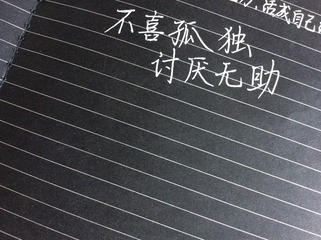 活成自己
不喜孤独
讨厌无助